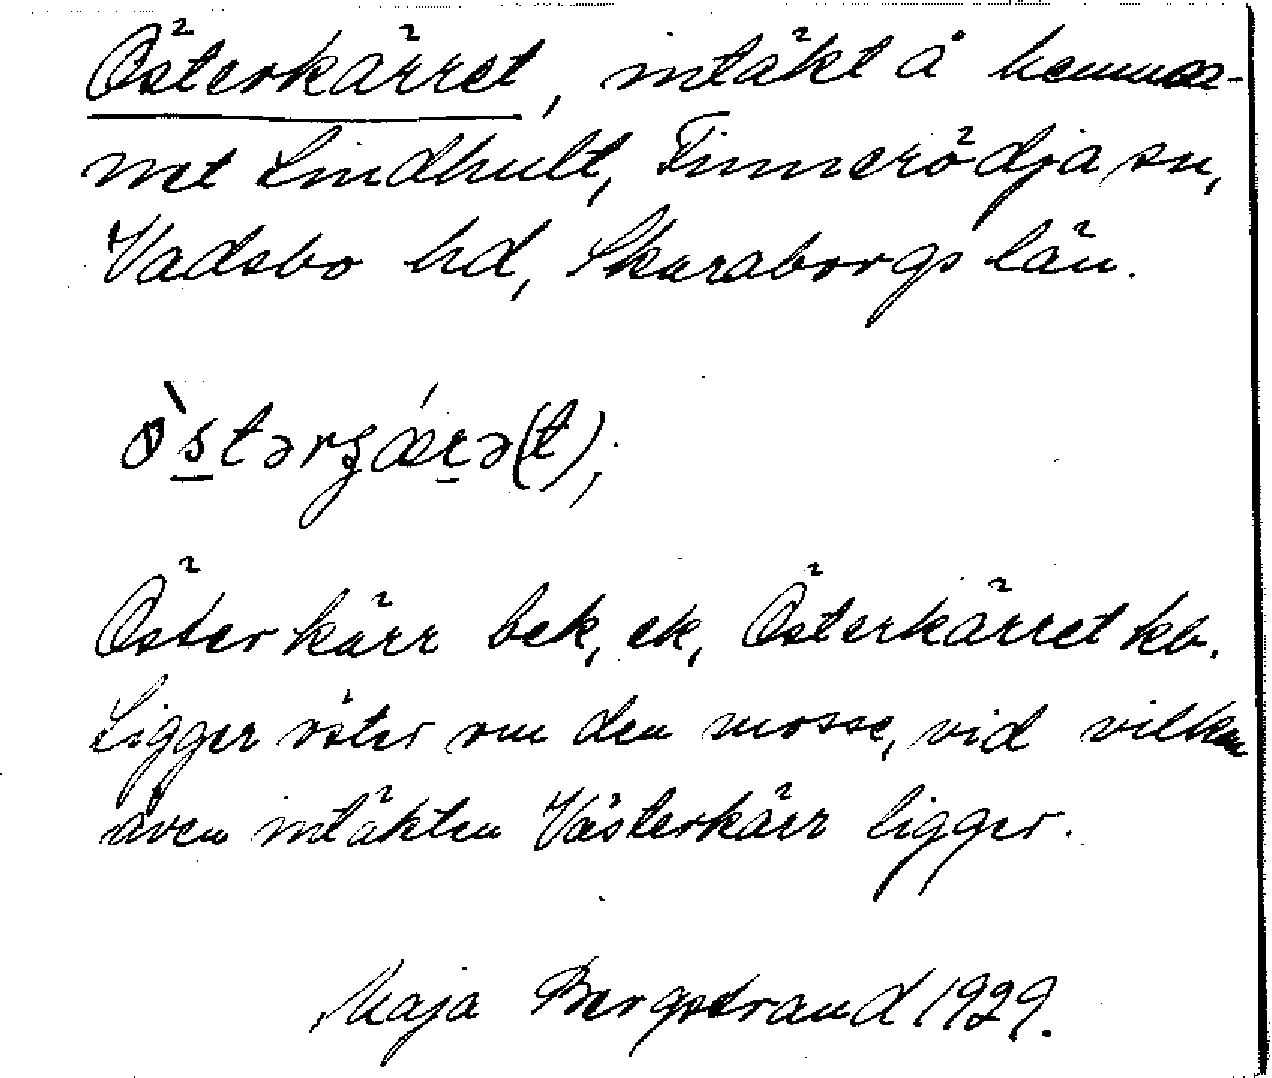 Österkärret, intäkt å hemma-
net Lindhult, Finnerödja sn,
Vadsbo hd, Skaraborgs län.
ö̀stərʒǽrə(t);
Österkärr bek, ek, Österkärret kb.
Ligger öster om den mosse, vid vilken
även intäkten Västerkärr ligger.
Maja Bergstrand 1929.